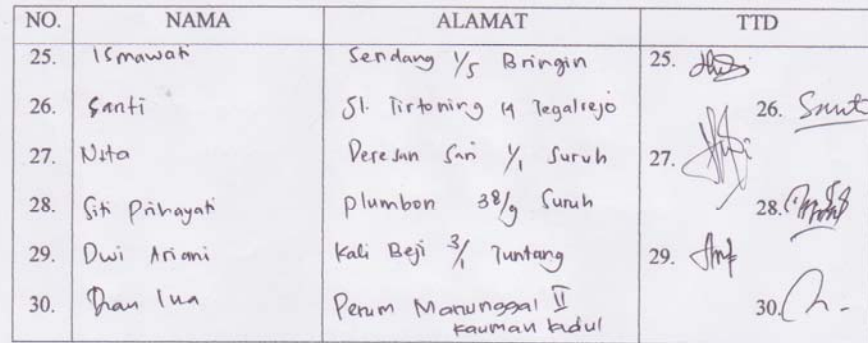 NO. NAMA ALAMAT TTD
25. Ismawati Sendang 1/5 Bringin 25.
26. Santi Jl. Tirtoning 14 Tegalrejo 26. Santi
27. Nita Deresan Sari 1/1 Suruh 27.
28. Siti Prihayati Plumbon 38/9 Suruh 28.
29. Dwi Ariani Kali Beji 3/1 Tuntang 29.
30. Perum Manunggal II 30.
Kauman Kidul